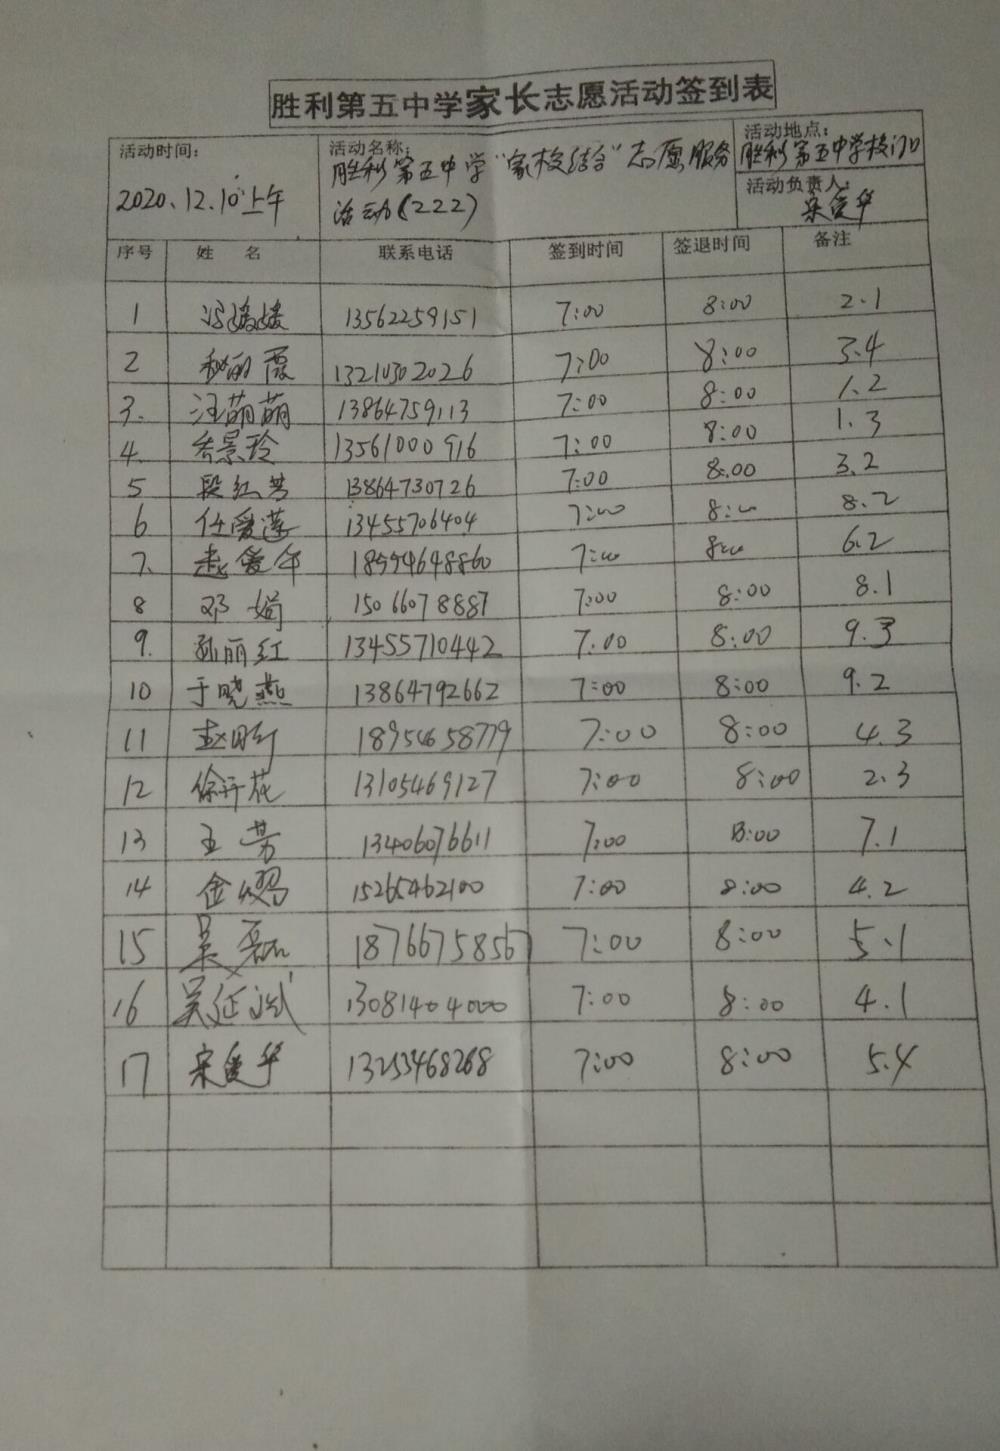 胜利第五中学家长志愿活动签到表
活动时间:
2020.12.10上午
活动名称:
胜利第五中学"家校结合"志愿服务
活动(222)
活动地点:
胜利第五中学校门口
活动负责人:
宋爱华
序号 姓 名 联系电话 签到时间 签退时间 备注
1 冯媛媛 13562259151 7:00 8:00 2.1
2 秘丽霞 13210302026 7:00 8:00 3.4
3. 汪萌萌 13864759113 7:00 8:00 1.2
4. 景玲 13561000916 7:00 8:00 1.3
5 段红芳 13864730726 7:00 8:00 3.2
6 任爱莲 13455706404 7:00 8:00 8.2
7. 赵爱华 18954648860 7:00 8:00 6.2
8 邓娟 15066078887 7:00 8:00 8.1
9. 孙丽红 13455710442 7.00 8:00 9.3
10 于晓燕 13864792662 7:00 8:00 9.2
11 赵 18954658779 7:00 8:00 4.3
12 徐开花 13105469127 7:00 8:00 2.3
13 王芳 13406076611 7:00 8:00 7.1
14 金 15265462100 7:00 8:00 4.2
15 吴磊 18766758567 7:00 8:00 5.1
16 吴延斌 13081404000 7:00 8:00 4.1
17 宋爱华 13253468268 7:00 8:00 5.4